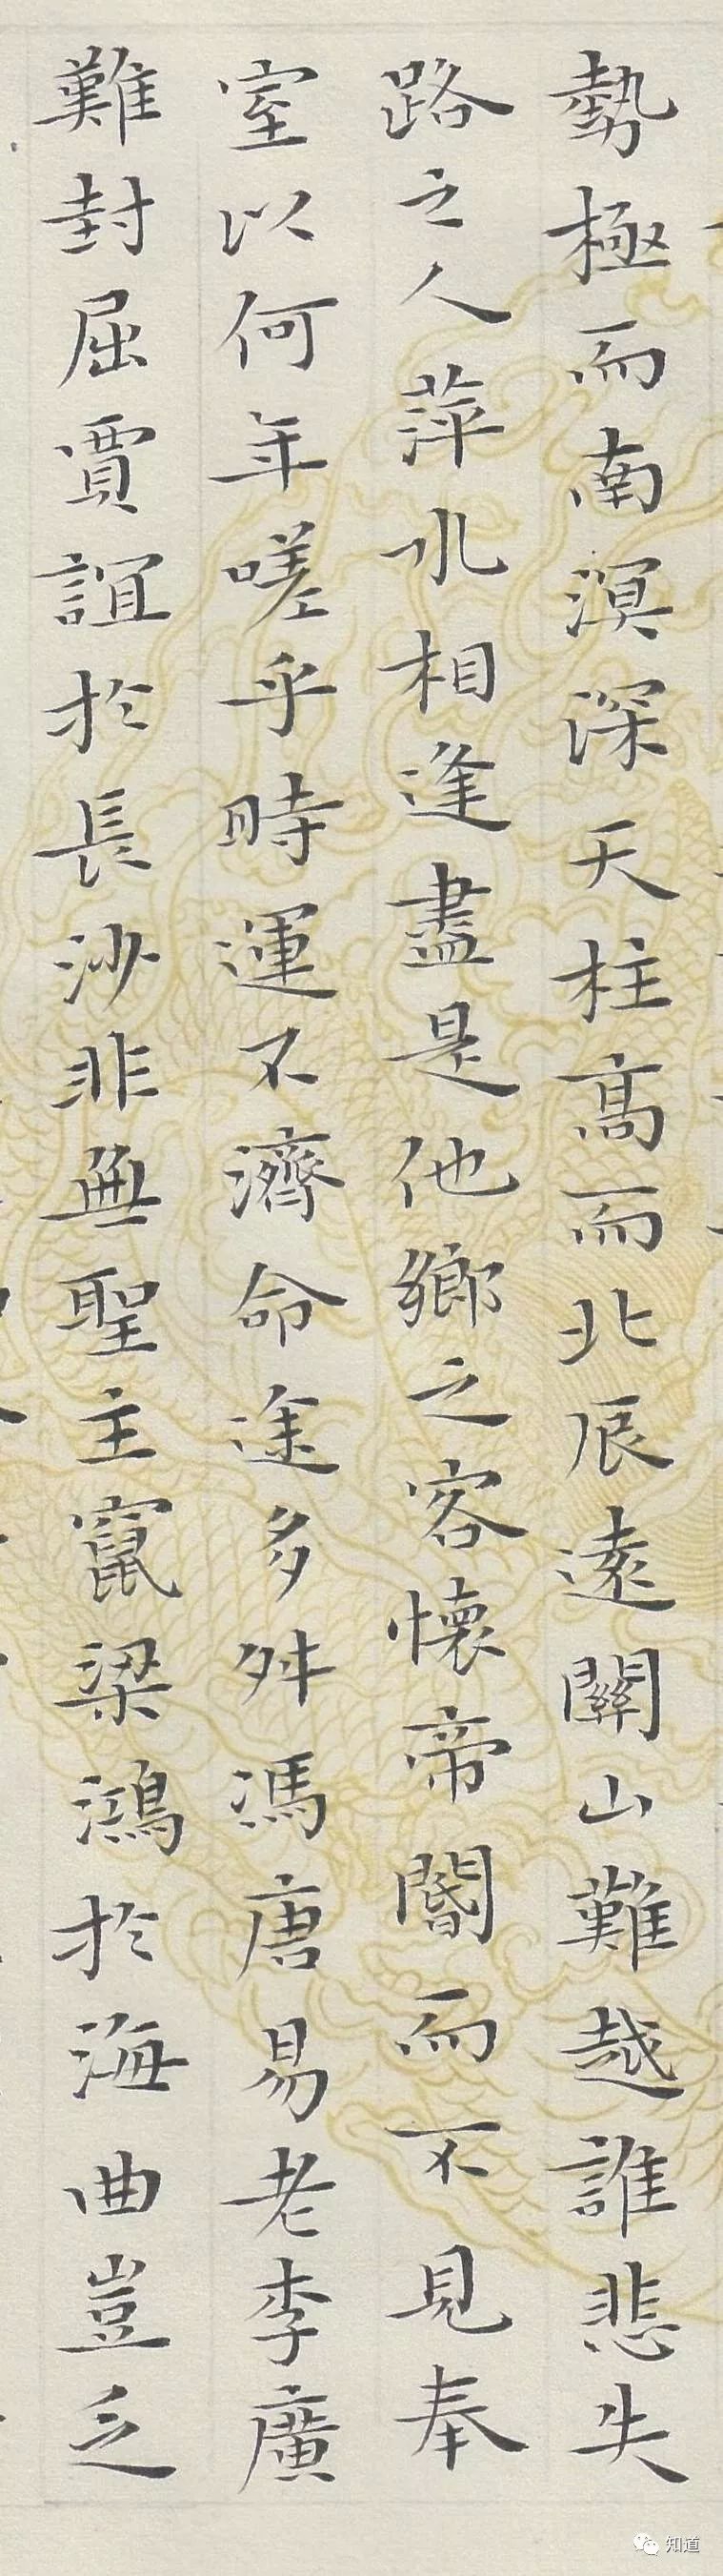 勢極而南溟深天柱高而北辰遠關山難越誰悲失
路之人萍水相逢盡是他鄉之客懷帝閽而不見奉
宣室以何年嗟乎時運不濟命途多舛馮唐易老李廣
難封屈賈誼於長沙非無聖主竄梁鴻於海曲豈乏
知道